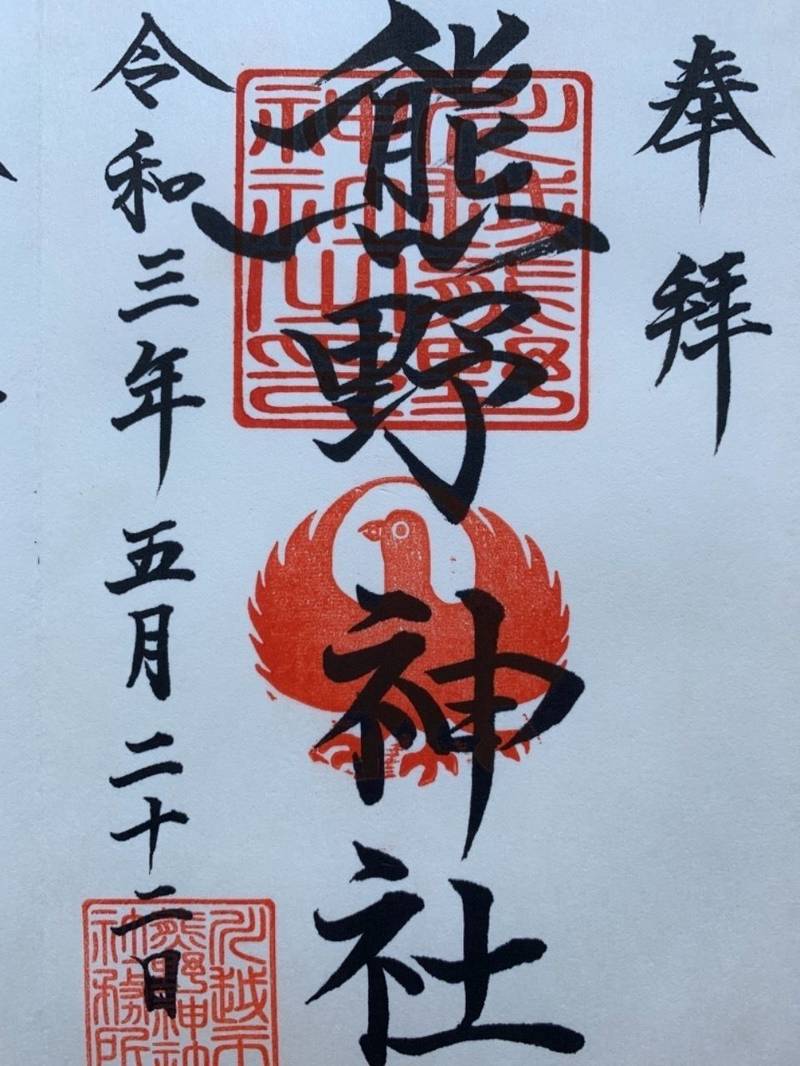 奉拝
熊野神社
令和三年五月二十二日
川越市
熊野神社
社務所